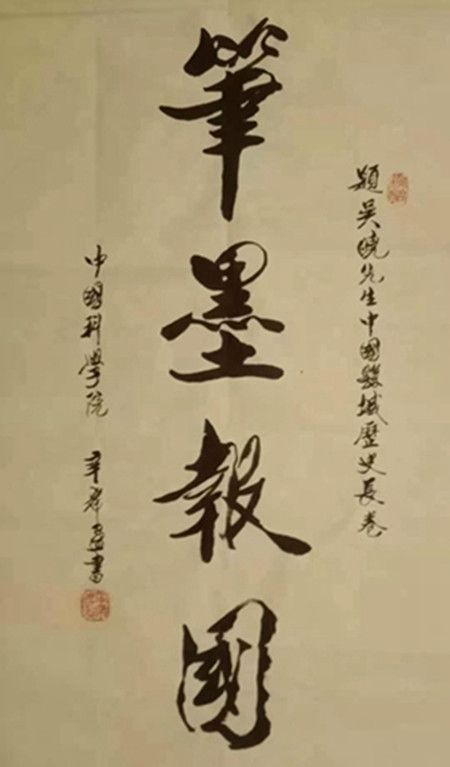 題吳曉先生中國縣域歷史長卷
筆墨報國
中國科學院 辛 書